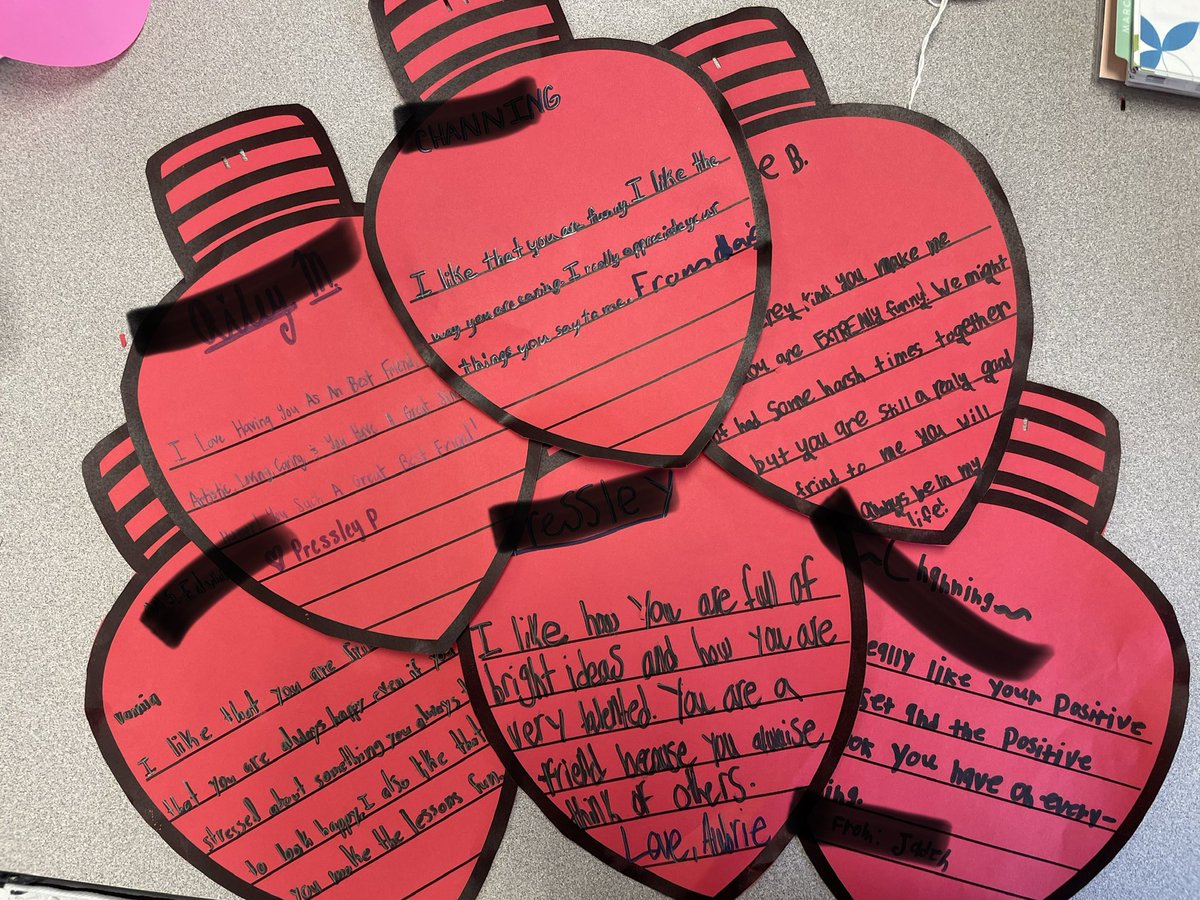 CHANNING
I like that you are funny. I like the
way you are caring. I really appreciate
things you say to me. From
e B.
you make me
you are EXTREMLY funny! We might
had some harsh times together
but you are still a realy good
frind to me you will
always be in my
life!
Riley M
I Love Having You As An Best Friend
Artistic, Caring & You Have A Great
Such A Great Best Friend!
♡ Pressley P
I like that you are
that you are always happy even if you
stressed about something you always
to look happy. I also like that
you make the lessons fun.
ressley
I like how you are full of
bright ideas and how you are
very talented. You are a
friend because you
think of others.
Love, Aubrie
~Channing~
eally like your positive
set and the positive
ook you have on every-
ing.
From:
MARC